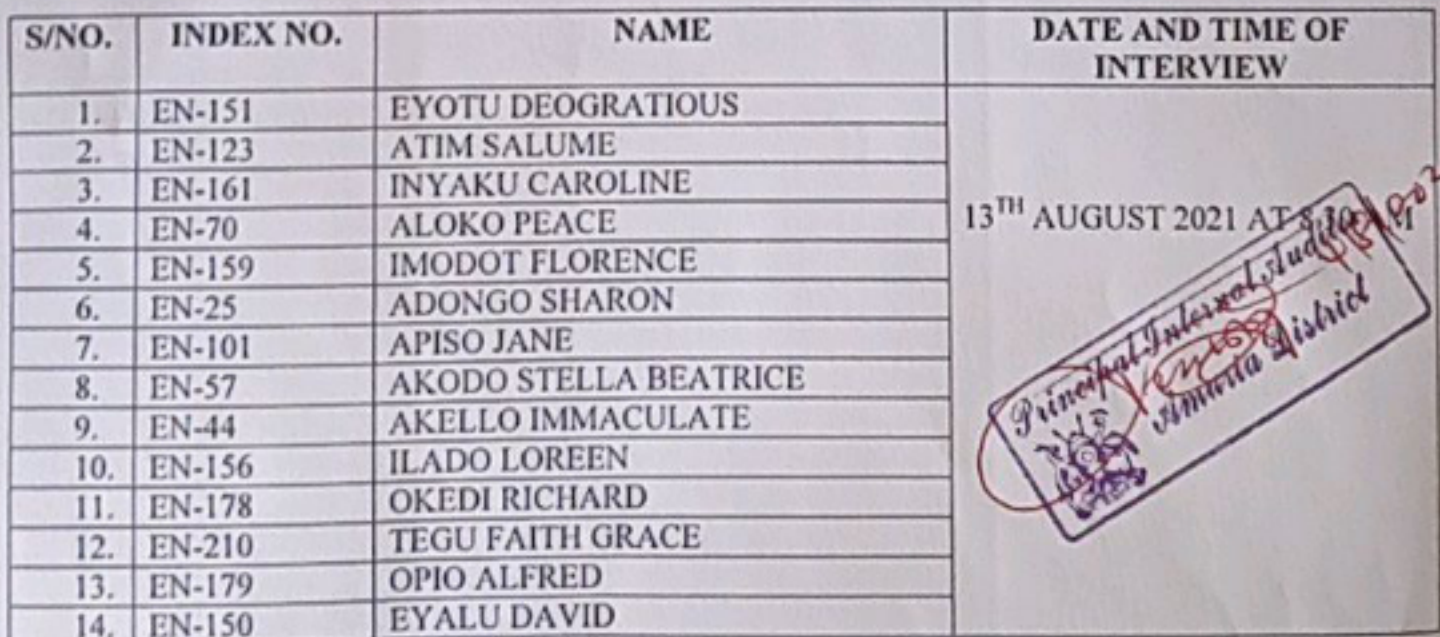 S/NO. INDEX NO. NAME DATE AND TIME OF
INTERVIEW
1. EN-151 EYOTU DEOGRATIOUS
2. EN-123 ATIM SALUME
3. EN-161 INYAKU CAROLINE
4. EN-70 ALOKO PEACE
13TH AUGUST 2021 AT 8.30 AM
5. EN-159 IMODOT FLORENCE
6. EN-25 ADONGO SHARON
7. EN-101 APISO JANE
8. EN-57 AKODO STELLA BEATRICE
9. EN-44 AKELLO IMMACULATE
10. EN-156 ILADO LOREEN
11. EN-178 OKEDI RICHARD
12. EN-210 TEGU FAITH GRACE
13. EN-179 OPIO ALFRED
14. EN-150 EYALU DAVID
Principal Internal Auditor
Amuria District